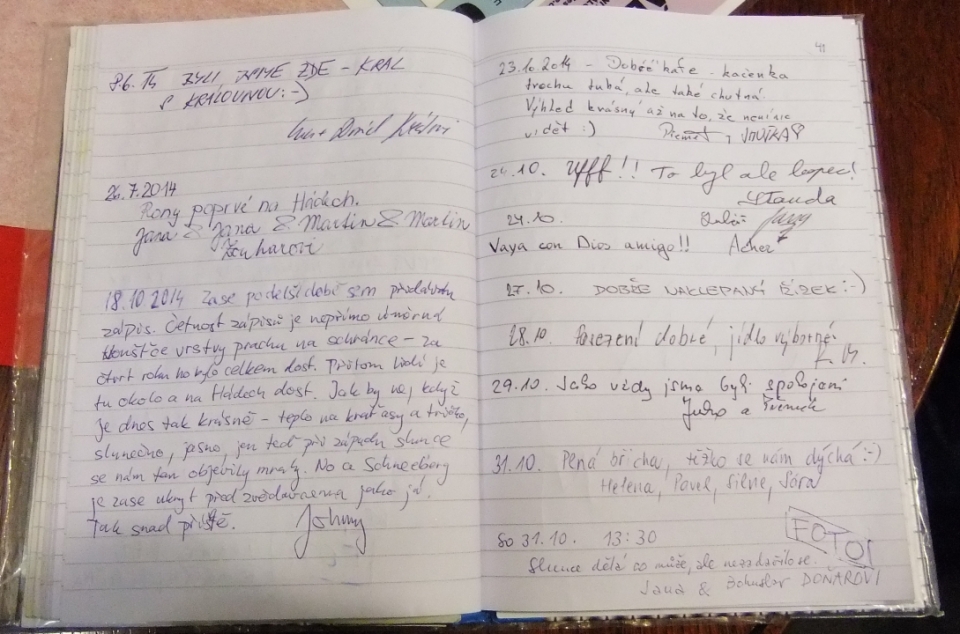 8.6. 14 BYLI JSME ZDE - KRÁL
S KRÁLOVNOU :-)
26.7.2014
Rony poprvé na Hádech.
Jana & Jana & Martin & Martin
Zouharovi
18.10.2014 Zase po delší době sem předávám
zápis. Četnost zápisů je nepřímo úměrná
tloušťce vrstvy prachu na schránce - za
čtvrt roku ho bylo celkem dost. Přitom lidí je
tu okolo a na Hádech dost. Jak by ne, když
je dnes tak krásně - teplo na kraťasy a tričko,
slunečno, jasno, jen teď při západu slunce
se nám tam objevily mraky. No a Schneeberg
je zase ukryt před zvědavcema jako já.
Tak snad příště. Johnny
41
23.10.2014 - Dobré kafe - kačenka
trochu tuhá, ale také chutná.
Výhled krásný až na to, že není nic
vidět :)
24.10. Ufff!! To byl ale kopec!
Standa
24.10.
Vaya con Dios amigo!! Acher
27.10. DOBŘE NAKLEPANÝ ŘÍZEK :-)
28.10. Posezení dobré, jídlo výborné
29.10. Jako vždy jsme byli spokojeni
31.10. Plná břicha, těžko se nám dýchá :-)
Helena, Pavel, Silne, Sára
FOTO!
So 31.10. 13:30
Slunce dělá co může, ale nezadařilo se.
Jana & Bohuslav DOŇAROVI